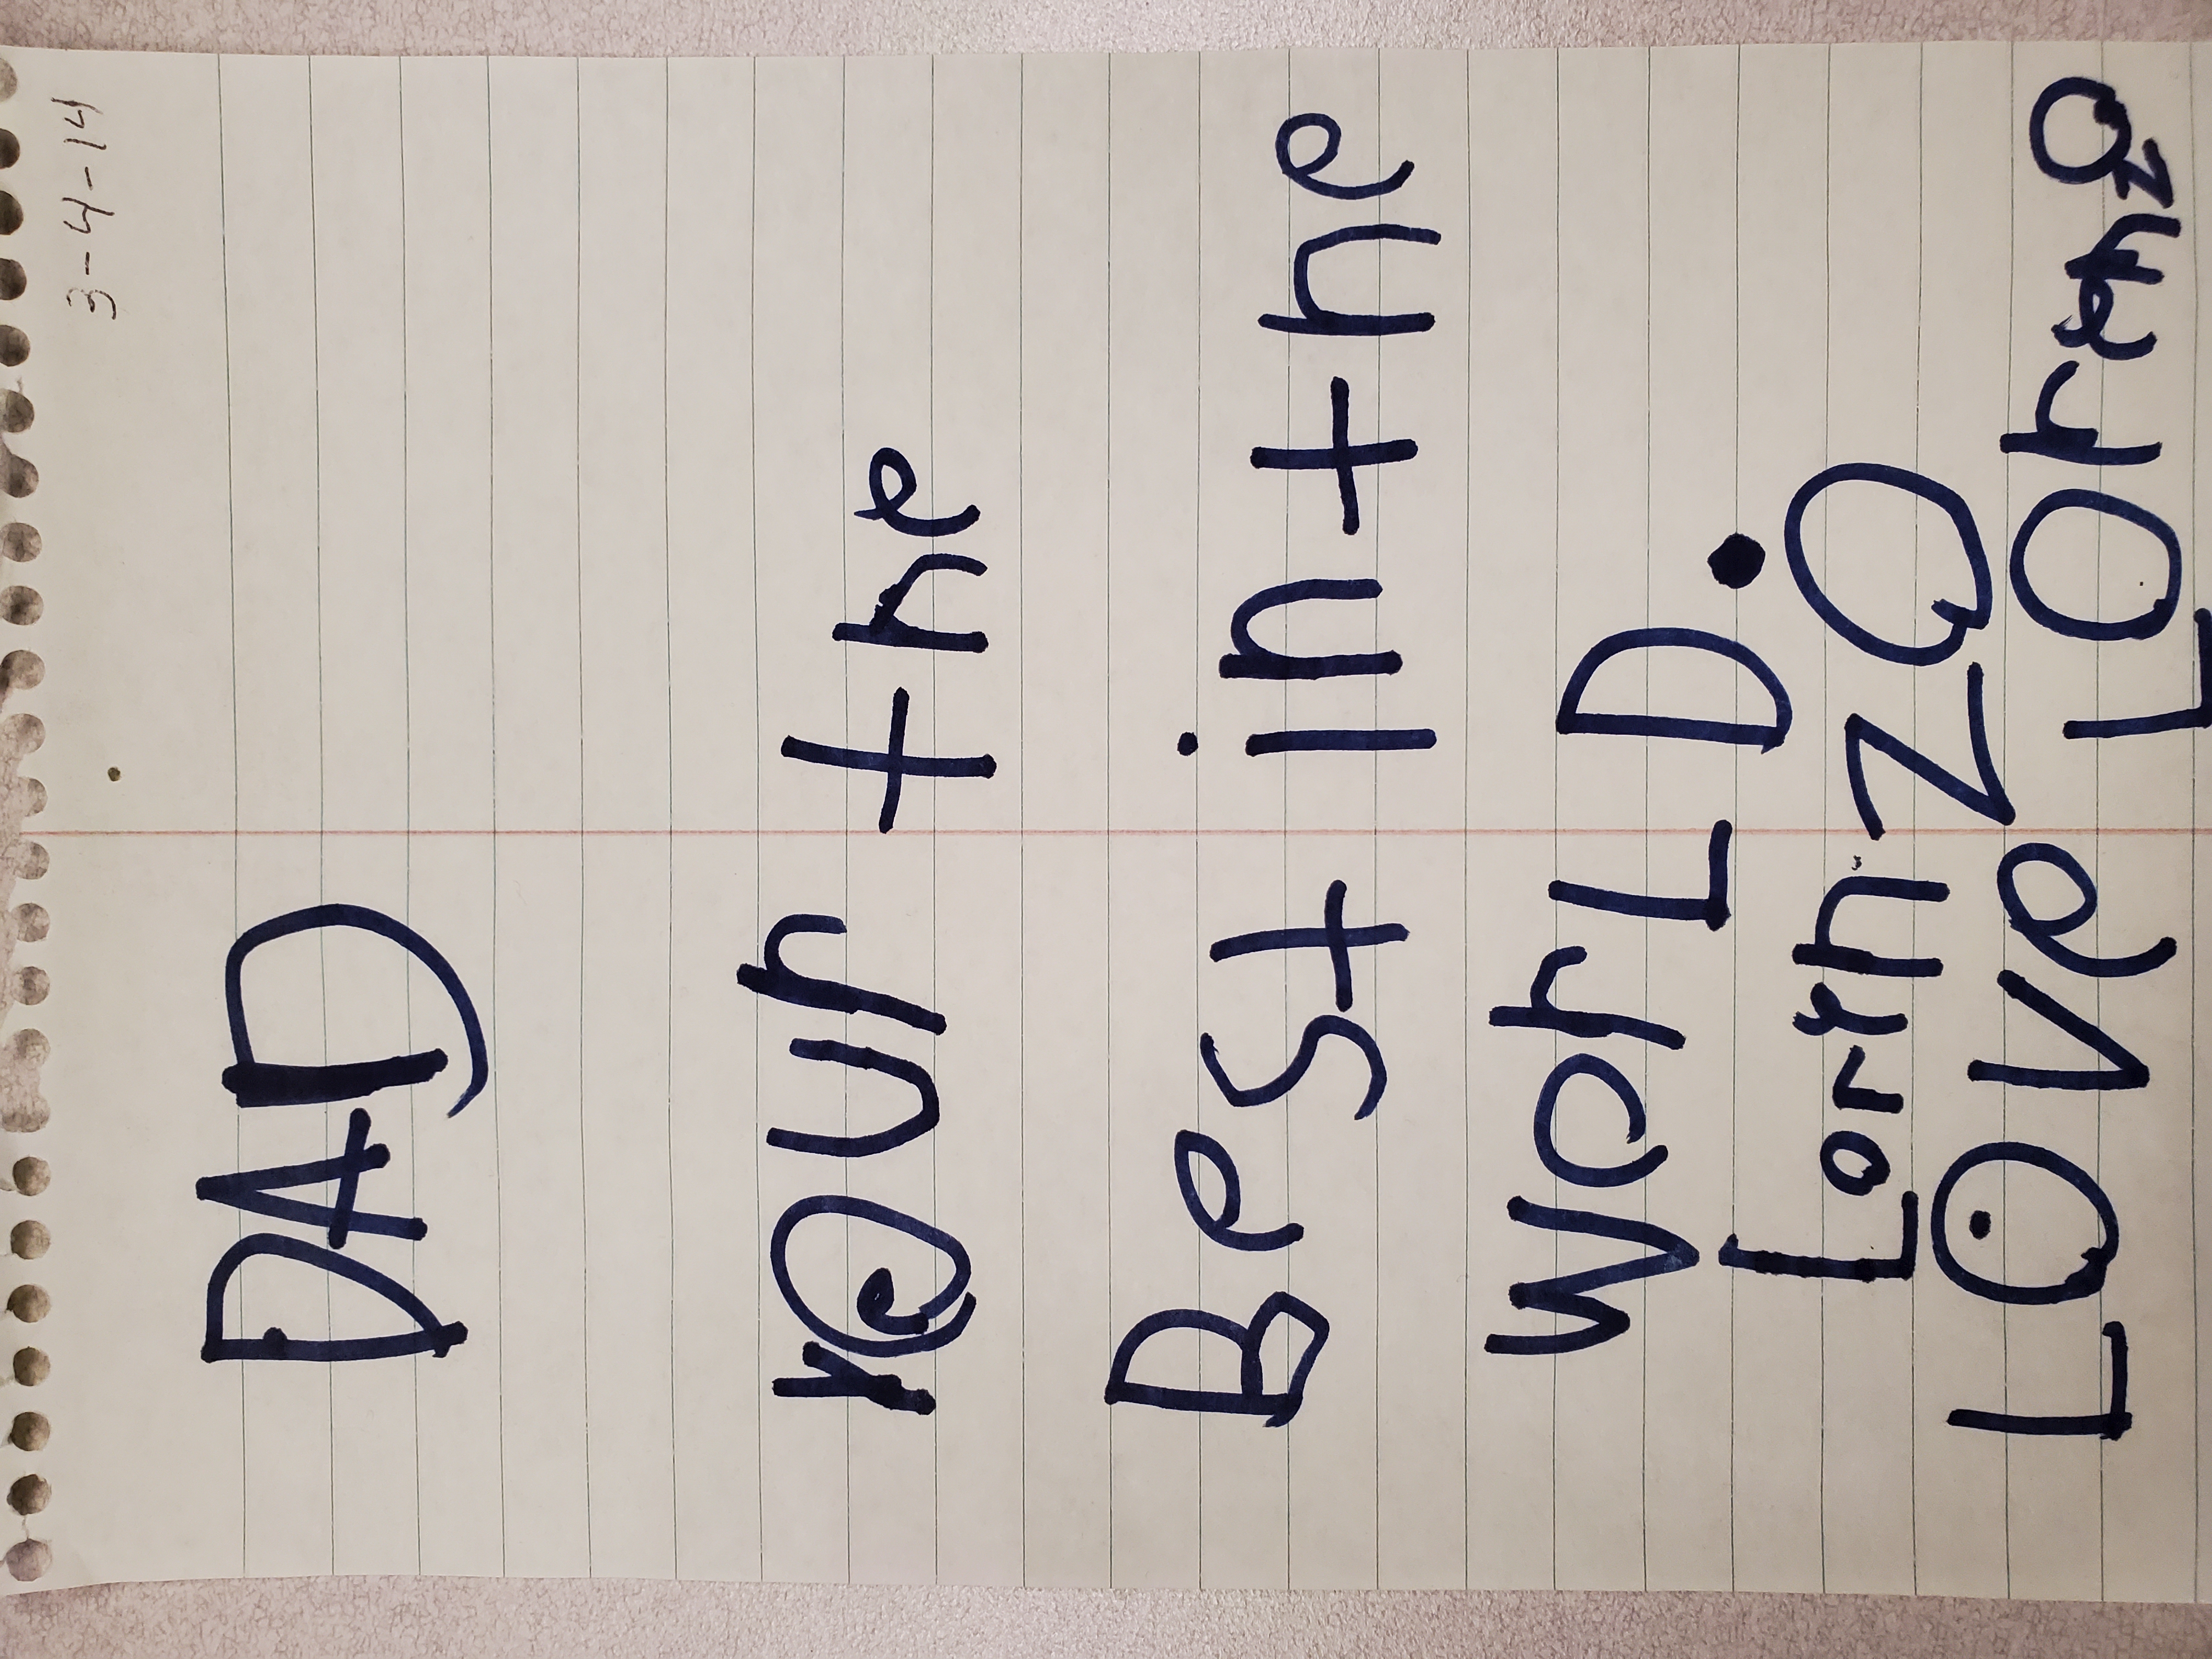 3-4-14
DAD
your the
Best in the
WerLD.
LornZO
LOVe LOrenzO